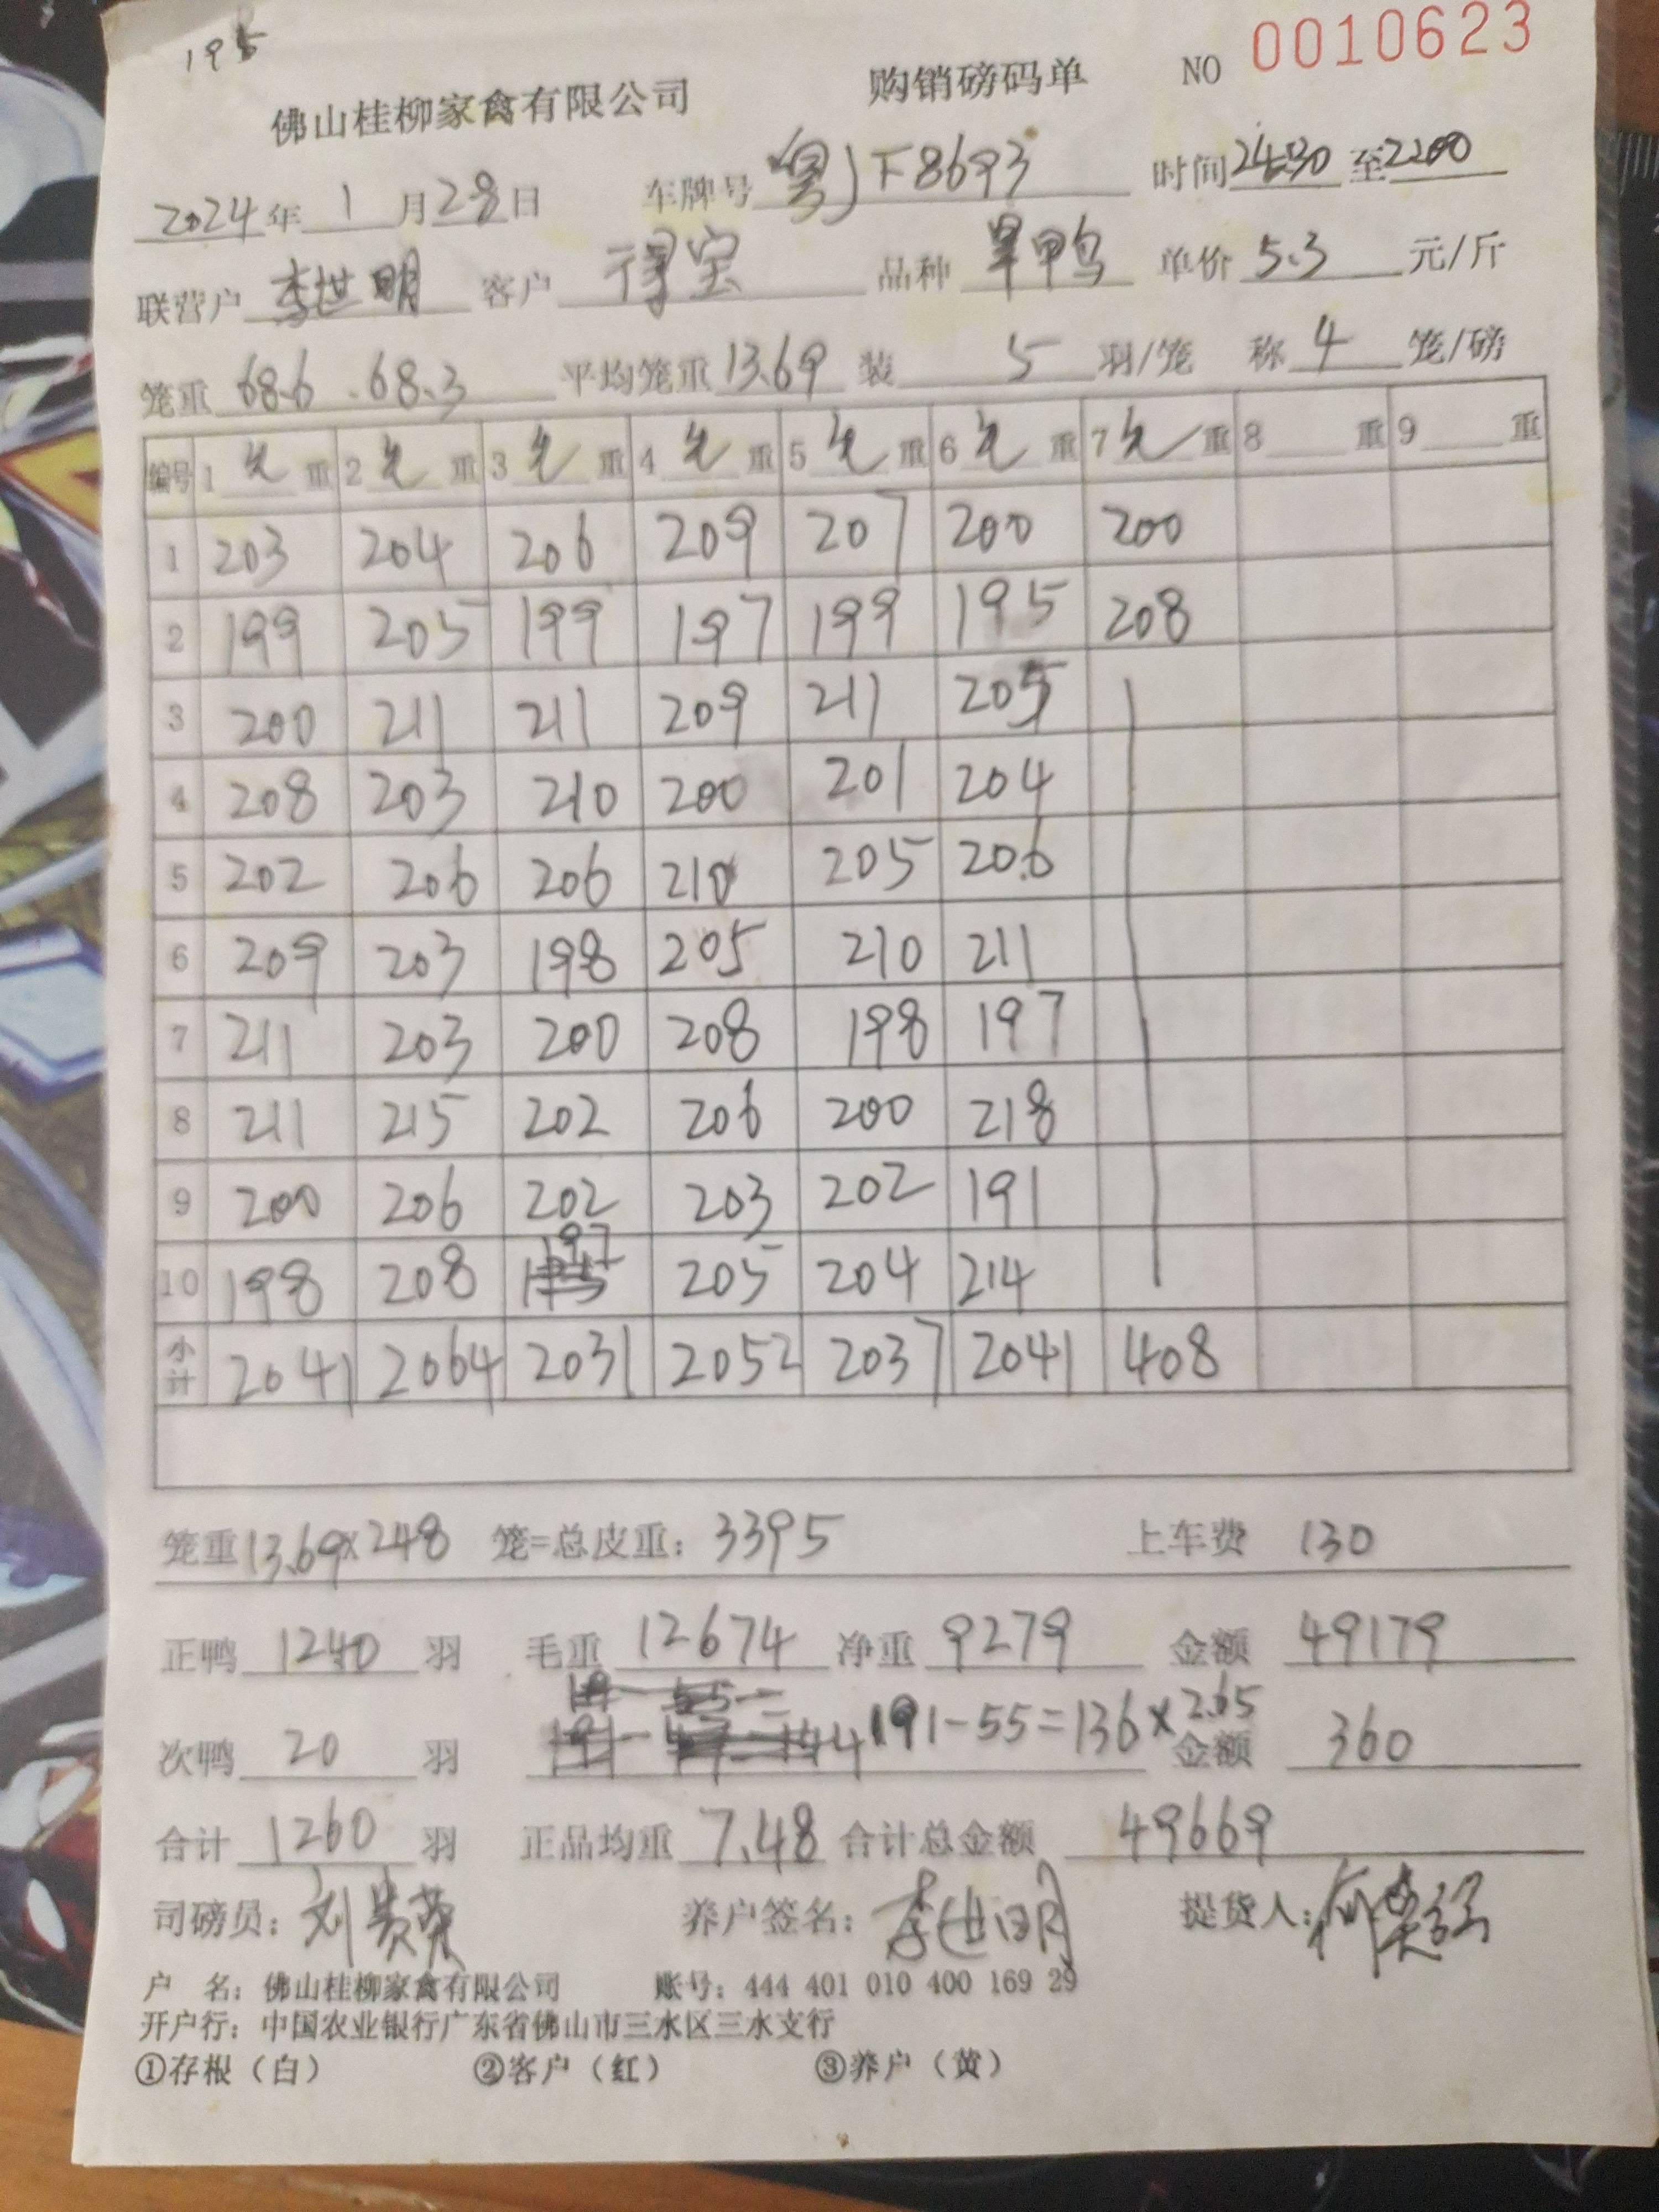 195
佛山桂柳家禽有限公司 购销磅码单 NO 0010623
2024年 1 月 28 日 车牌号 粤JF8693 时间 至 2200
联营户 李世明 客户 得宝 品种 旱鸭 单价 5.3 元/斤
笼重 68.6 .68.3 平均笼重 13.69 装 5 羽/笼 称 4 笼/磅
编号 1 毛 重 2 毛 重 3 毛 重 4 毛 重 5 毛 重 6 毛 重 7 毛 重 8 重 9 重
1 203 204 206 209 207 200 200
2 199 205 199 197 199 195 208
3 200 211 211 209 211 205
4 208 203 210 200 201 204
5 202 206 206 210 205 206
6 209 203 198 205 210 211
7 211 203 200 208 198 197
8 211 215 202 206 200 218
9 200 206 202 203 202 191
10 198 208 197 205 204 214
小计 2041 2064 2031 2052 2037 2041 408
笼重 13.69×248 笼=总皮重: 3395 上车费 130
正鸭 1240 羽 毛重 12674 净重 9279 金额 49179
次鸭 20 羽 191-55=136×2.65 金额 360
合计 1260 羽 正品均重 7.48 合计总金额 49669
司磅员: 刘贵荣 养户签名: 李世明 提货人:
户 名: 佛山桂柳家禽有限公司 账号: 444 401 010 400 169 29
开户行: 中国农业银行广东省佛山市三水区三水支行
①存根（白） ②客户（红） ③养户（黄）